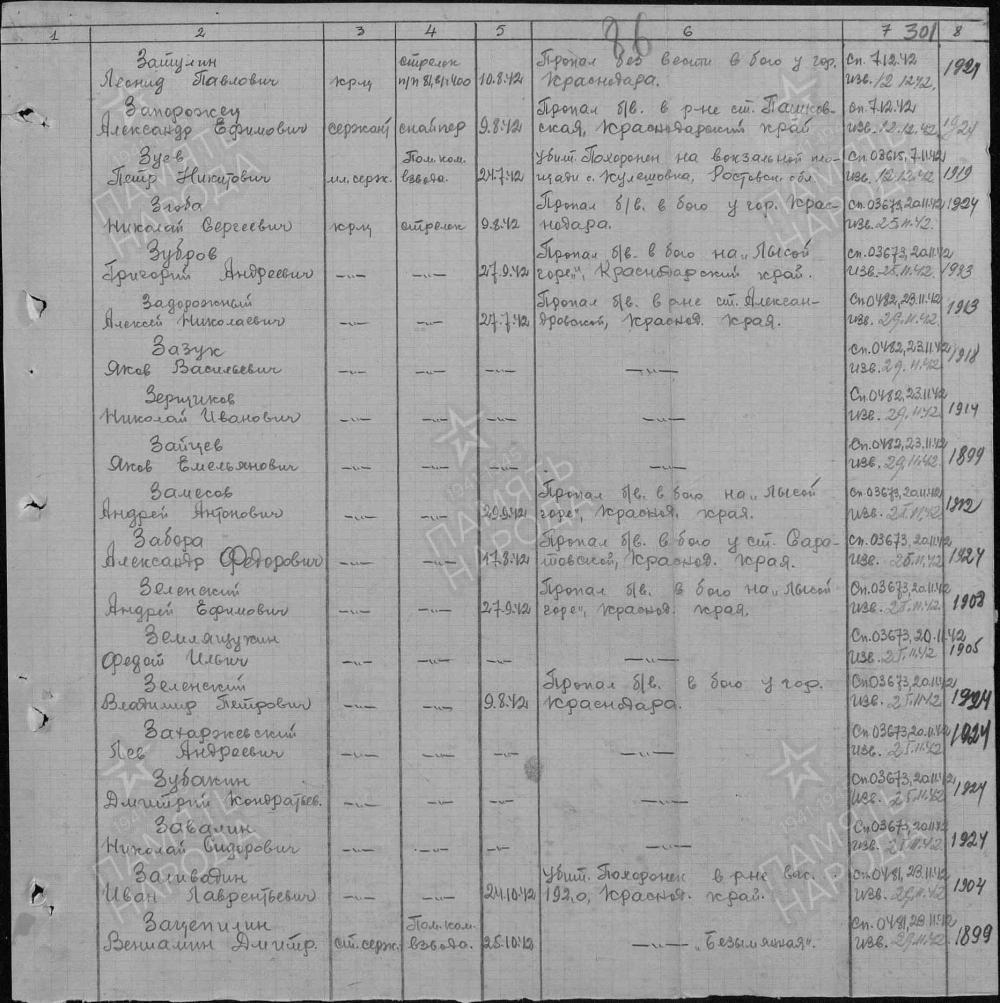 86 301
1 2 3 4 5 6 7 8
Зайцулин стрелок Пропал без вести в бою у гор. Сп. 7.12.42
Леонид Павлович крц п/п 81, в/ч 400 10.8.42 Краснодара. изв. 12.12.42. 1921
Запорожец Пропал б/в. в р-не ст. Пашков- сп. 7.12.42
Александр Ефимович сержант снайпер 9.8.42 ская, Краснодарский край изв. 12.12.42. 1921
Зуев Пом.ком. Убит. Похоронен на вокзальной пло- Сп. 03615, 7.11.42
Петр Никитович мл.серж. взвода. 24.7.42 щади с. Кулешовка, Ростовск. обл. изв. 12.12.42 1919
Згоба Пропал б/в. в бою у гор. Крас- Сп. 03673, 20.11.42 1924
Николай Сергеевич крц стрелок 9.8.42 нодара. изв. 25.11.42.
Зубров Пропал б/в. в бою на „Лысой сп. 03673, 20.11.42
Григорий Андреевич —„— —„— 27.9.42 горе", Краснодарский край. изв. 25.11.42.
Задорожный Пропал б/в. в р-не ст. Алексан- Сп. 0482, 23.11.42 1913
Алексей Николаевич —„— —„— 27.7.42 дровской, Краснод. края. изв. 29.11.42.
Зазук Сп. 0482, 23.11.42
Яков Васильевич —„— —„— —„— изв. 29.11.42. 1918
Зерщиков Сп. 0482, 23.11.42
Николай Иванович —„— —„— —„— изв. 29.11.42 1914
Зайцев Сп. 0482, 23.11.42
Яков Емельянович —„— —„— —„— —„— изв. 29.11.42. 1899
Замесов Пропал б/в. в бою на „Лысой Сп. 03673, 20.11.42
Андрей Антонович —„— —„— горе", Краснод. края. изв. 25.11.42.
Забора Пропал б/в. в бою у ст. Сара- Сп. 03673, 20.11.42
Александр Федорович —„— —„— 17.8.42 товской, Краснод. края. изв. 25.11.42. 1924
Зеленский Пропал б/в. в бою на „Лысой Сп. 03673, 20.11.42
Андрей Ефимович —„— —„— 27.9.42 горе", Краснод. края. изв. 25.11.42 1908
Землящужин Сп. 03673, 20.11.42
Федот Ильич —„— —„— —„— —„— изв. 25.11.42 1905
Зеленский Пропал б/в. в бою у гор. Сп. 03673, 20.11.42
Владимир Петрович —„— —„— 9.8.42 Краснодара. изв. 25.11.42 1924
Захаржевский Сп. 03673, 20.11.42 1924
Лев Андреевич —„— —„— —„— —„— изв. 25.11.42
Зубакин Сп. 03673, 20.11.42
Дмитрий Кондратьев. —„— —„— —„— —„— изв. 25.11.42 1924
Завалин Сп. 03673, 20.11.42
Николай Сидорович —„— —„— —„— —„— изв. 25.11.42 1924
Заливадин Убит. Похоронен в р-не выс. Сп. 0481, 23.11.42
Иван Лаврентьевич —„— —„— 24.10.42 192,0, Краснод. край. изв. 29.11.42 1904
Зацепилин Пом.ком. Сп. 0481, 23.11.42
Вениамин Дмитр. ст.серж. взвода. 25.10.42 —„— „Безымянная". изв. 29.11.42. 1899
1941-1945
ПАМЯТЬ
НАРОДА